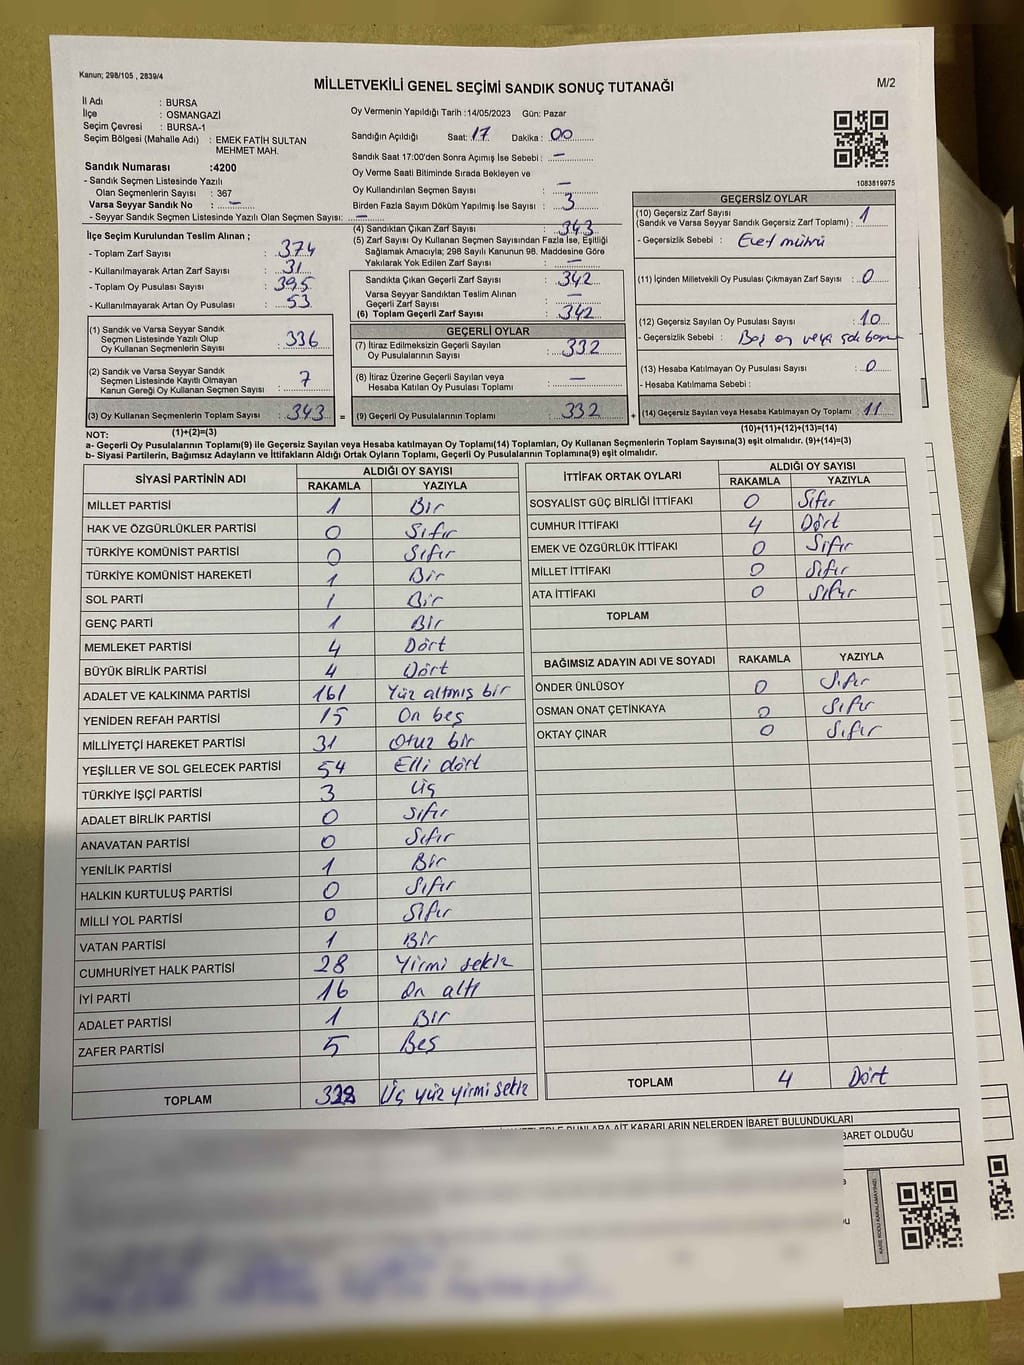 Kanun; 298/105 , 2839/4
MİLLETVEKİLİ GENEL SEÇİMİ SANDIK SONUÇ TUTANAĞI
M/2
İl Adı : BURSA
İlçe : OSMANGAZİ
Seçim Çevresi : BURSA-1
Seçim Bölgesi (Mahalle Adı) : EMEK FATİH SULTAN
MEHMET MAH.
Sandık Numarası :4200
- Sandık Seçmen Listesinde Yazılı
Olan Seçmenlerin Sayısı : 367
Varsa Seyyar Sandık No : –
- Seyyar Sandık Seçmen Listesinde Yazılı Olan Seçmen Sayısı: –
Oy Vermenin Yapıldığı Tarih :14/05/2023 Gün: Pazar
Sandığın Açıldığı Saat: 17 Dakika : 00
Sandık Saat 17:00'den Sonra Açımış İse Sebebi : –
Oy Verme Saati Bitiminde Sırada Bekleyen ve
Oy Kullandırılan Seçmen Sayısı : –
Birden Fazla Sayım Döküm Yapılmış İse Sayısı : 3
1083819975
İlçe Seçim Kurulundan Teslim Alınan ;
- Toplam Zarf Sayısı : 374
- Kullanılmayarak Artan Zarf Sayısı : 31
- Toplam Oy Pusulası Sayısı : 395
- Kullanılmayarak Artan Oy Pusulası : 53
(1) Sandık ve Varsa Seyyar Sandık
Seçmen Listesinde Yazılı Olup
Oy Kullanan Seçmenlerin Sayısı : 336
(2) Sandık ve Varsa Seyyar Sandık
Seçmen Listesinde Kayıtlı Olmayan
Kanun Gereği Oy Kullanan Seçmen Sayısı : 7
(3) Oy Kullanan Seçmenlerin Toplam Sayısı : 343 =
(1)+(2)=(3)
(4) Sandıktan Çıkan Zarf Sayısı : 343
(5) Zarf Sayısı Oy Kullanan Seçmen Sayısından Fazla İse, Eşitliği
Sağlamak Amacıyla; 298 Sayılı Kanunun 98. Maddesine Göre
Yakılarak Yok Edilen Zarf Sayısı : –
Sandıkta Çıkan Geçerli Zarf Sayısı : 342
Varsa Seyyar Sandıktan Teslim Alınan
Geçerli Zarf Sayısı : –
(6) Toplam Geçerli Zarf Sayısı : 342
GEÇERLİ OYLAR
(7) İtiraz Edilmeksizin Geçerli Sayılan
Oy Pusulalarının Sayısı : 332
(8) İtiraz Üzerine Geçerli Sayılan veya
Hesaba Katılan Oy Pusulası Toplamı : –
(9) Geçerli Oy Pusulalarının Toplamı : 332 +
GEÇERSİZ OYLAR
(10) Geçersiz Zarf Sayısı
(Sandık ve Varsa Seyyar Sandık Geçersiz Zarf Toplamı) : 1
- Geçersizlik Sebebi : Evet mührü
(11) İçinden Milletvekili Oy Pusulası Çıkmayan Zarf Sayısı : 0
(12) Geçersiz Sayılan Oy Pusulası Sayısı : 10
- Geçersizlik Sebebi : Boş oy veya
(13) Hesaba Katılmayan Oy Pusulası Sayısı : 0
- Hesaba Katılmama Sebebi :
(14) Geçersiz Sayılan veya Hesaba Katılmayan Oy Toplamı : 11
(10)+(11)+(12)+(13)=(14)
NOT:
a- Geçerli Oy Pusulalarının Toplamı(9) ile Geçersiz Sayılan veya Hesaba katılmayan Oy Toplamı(14) Toplamları, Oy Kullanan Seçmenlerin Toplam Sayısına(3) eşit olmalıdır. (9)+(14)=(3)
b- Siyasi Partilerin, Bağımsız Adayların ve İttifakların Aldığı Ortak Oyların Toplamı, Geçerli Oy Pusulalarının Toplamına(9) eşit olmalıdır.
SİYASİ PARTİNİN ADI ALDIĞI OY SAYISI
RAKAMLA YAZIYLA
MİLLET PARTİSİ 1 Bir
HAK VE ÖZGÜRLÜKLER PARTİSİ 0 Sıfır
TÜRKİYE KOMÜNİST PARTİSİ 0 Sıfır
TÜRKİYE KOMÜNİST HAREKETİ 1 Bir
SOL PARTİ 1 Bir
GENÇ PARTİ 1 Bir
MEMLEKET PARTİSİ 4 Dört
BÜYÜK BİRLİK PARTİSİ 4 Dört
ADALET VE KALKINMA PARTİSİ 161 Yüz altmış bir
YENİDEN REFAH PARTİSİ 15 On beş
MİLLİYETÇİ HAREKET PARTİSİ 31 Otuz bir
YEŞİLLER VE SOL GELECEK PARTİSİ 54 Elli dört
TÜRKİYE İŞÇİ PARTİSİ 3 Üç
ADALET BİRLİK PARTİSİ 0 Sıfır
ANAVATAN PARTİSİ 0 Sıfır
YENİLİK PARTİSİ 1 Bir
HALKIN KURTULUŞ PARTİSİ 0 Sıfır
MİLLİ YOL PARTİSİ 0 Sıfır
VATAN PARTİSİ 1 Bir
CUMHURİYET HALK PARTİSİ 28 Yirmi sekiz
İYİ PARTİ 16 On altı
ADALET PARTİSİ 1 Bir
ZAFER PARTİSİ 5 Beş
TOPLAM 328 Üç yüz yirmi sekiz
İTTİFAK ORTAK OYLARI ALDIĞI OY SAYISI
RAKAMLA YAZIYLA
SOSYALİST GÜÇ BİRLİĞİ İTTİFAKI 0 Sıfır
CUMHUR İTTİFAKI 4 Dört
EMEK VE ÖZGÜRLÜK İTTİFAKI 0 Sıfır
MİLLET İTTİFAKI 0 Sıfır
ATA İTTİFAKI 0 Sıfır
TOPLAM
BAĞIMSIZ ADAYIN ADI VE SOYADI RAKAMLA YAZIYLA
ÖNDER ÜNLÜSOY 0 Sıfır
OSMAN ONAT ÇETİNKAYA 0 Sıfır
OKTAY ÇINAR 0 Sıfır
TOPLAM 4 Dört
BUNLARA AİT KARARLARIN NELERDEN İBARET BULUNDUKLARI
BARET OLDUĞU
KARE KODU KARALAMAYINIZ!